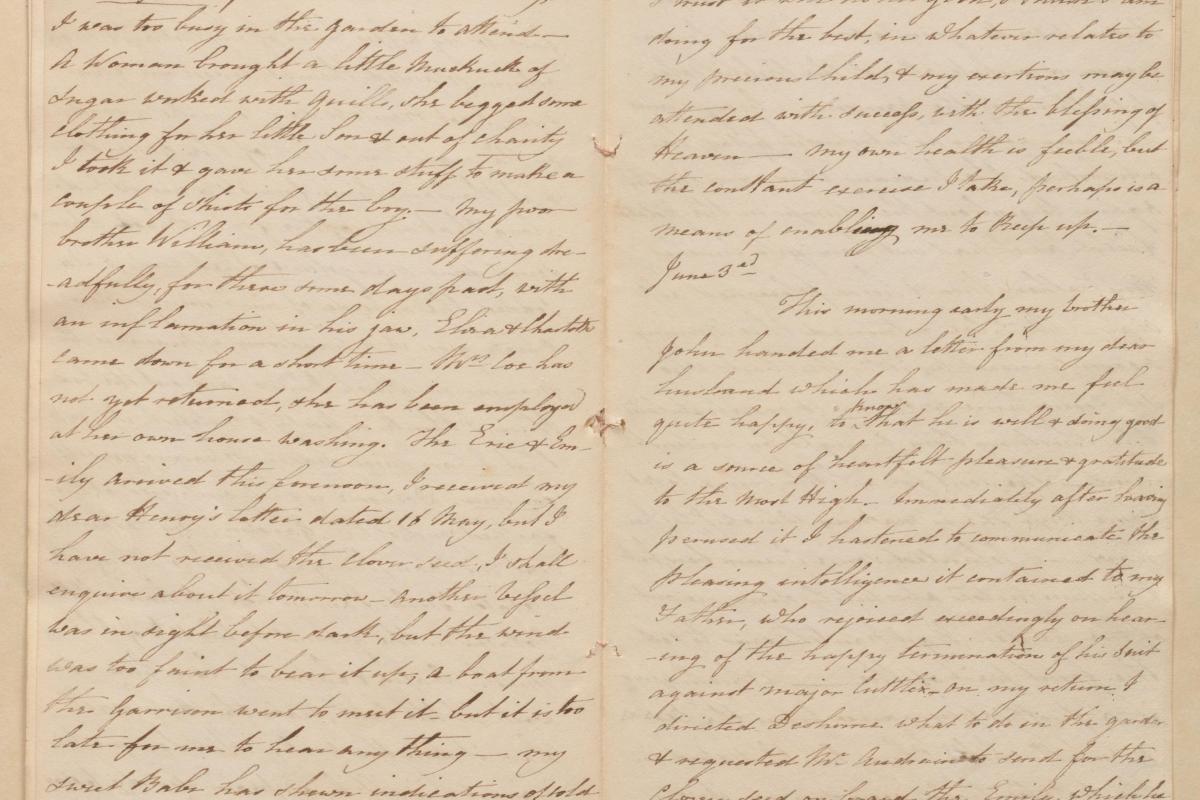 I was too busy in the garden to attend—
A Woman brought a little Muckuck of
Sugar worked with Quills, she begged some
clothing for her little Son & out of charity
I took it & gave her some stuff to make a
couple of Shirts for the boy.— My poor
brother William, has been suffering dre-
-adfully, for these some days past, with
an inflamation in his jaw, Eliza & Charlotte
came down for a short time— Mrs. Coe has
not yet returned, she has been employed
at her own house washing. The Erie & Em-
-ily arrived this forenoon, I received my
dear Henry's letter dated 16 May, but I
have not received the Clover seed, I shall
enquire about it tomorrow— another vessel
was in sight before dark, but the wind
was too faint to bear it up, a boat from
the Garrison went to meet it— but it is too
late for me to hear any thing— my
sweet Babe has shown indications of cold
I trust it will do
doing for the best, in whatever relates to
my precious Child, & my exertions may be
attended with success, with the blessing of
Heaven— my own health is feeble, but
the constant exercise I take, perhaps is a
means of enabling me to keep up.—
June 3ed
This morning early my brother
John handed me a letter from my dear
husband which has made me feel
quite happy, to know that he is well & doing good
is a source of heartfelt pleasure & gratitude
to the Most High— Immediately after having
perused it I hastened to communicate the
pleasing intelligence it contained to my
Father, who rejoiced exceedingly on hear-
-ing of the happy termination of his Suit
against major— on my return I
directed what to do in the garden
& requested Mr. Audrain to send for the
Clover seed on board the Emily, which he